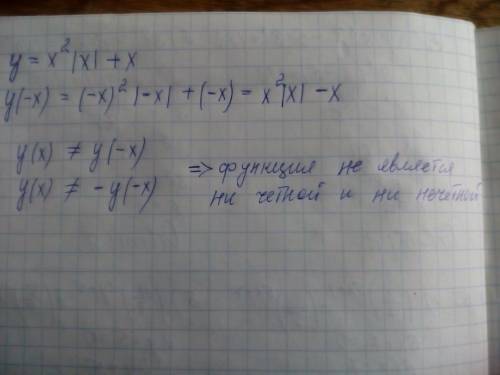 y = x²|x| + x
y(-x) = (-x)²|-x| + (-x) = x²|x| - x
y(x) ≠ y(-x)
y(x) ≠ -y(-x)
=> функция не является
ни четной и ни нечетной